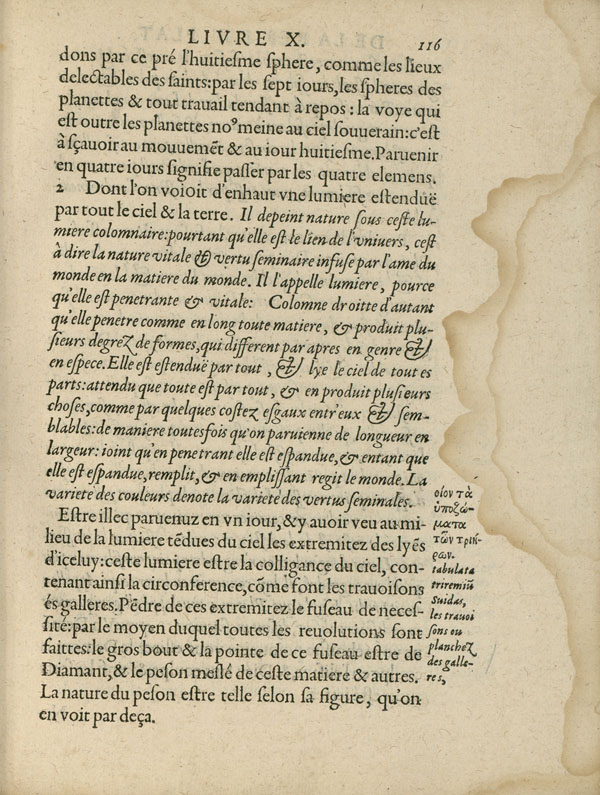 LIVRE X. 116
dons par ce pré l'huitiesme sphere, comme les lieux
delectables des saints: par les sept iours, les spheres des
planettes & tout trauail tendant à repos: la voye qui
est outre les planettes noꝰ meine au ciel souuerain: c'est
à sçauoir au mouuemẽt & au iour huitiesme. Paruenir
en quatre iours signifie passer par les quatre elemens.
2 Dont l'on voioit d'enhaut vne lumiere estenduë
par tout le ciel & la terre. Il depeint nature sous ceste lu-
miere colomnaire: pourtant qu'elle est le lien de l'vniuers, cest
à dire la nature vitale & vertu seminaire infuse par l'ame du
monde en la matiere du monde. Il l'appelle lumiere, pource
qu'elle est penetrante & vitale: Colomne droitte d'autant
qu'elle penetre comme en long toute matiere, & produit plu-
sieurs degrez de formes, qui different par apres en genre &
en espece. Elle est estenduë par tout, & lye le ciel de toutes
parts: attendu que toute est par tout, & en produit plusieurs
choses, comme par quelques costez esgaux entr'eux & sem-
blables: de maniere toutesfois qu'on paruienne de longueur en
largeur: ioint qu'en penetrant elle est espandue, & entant que
elle est espandue, remplit, & en emplissant regit le monde. La
varieté des couleurs denote la varieté des vertus seminales.
Estre illec paruenuz en vn iour, & y auoir veu au mi-
lieu de la lumiere tẽdues du ciel les extremitez des lyẽs
d'iceluy: ceste lumiere estre la colligance du ciel, con-
tenant ainsi la circonference, cõme font les trauoisons
és galleres. Pẽdre de ces extremitez le fuseau de neces-
sité: par le moyen duquel toutes les reuolutions sont
faittes: le gros bout & la pointe de ce fuseau estre de
Diamant, & le peson meslé de ceste matiere & autres.
La nature du peson estre telle selon sa figure, qu'on
en voit par deça.
οἷον τὰ
ὑποζώ-
ματα
τῶν τριή-
ρων.
tabulata
triremiũ
Suidas,
les trauoi
sons ou
planchez
des galle-
res,